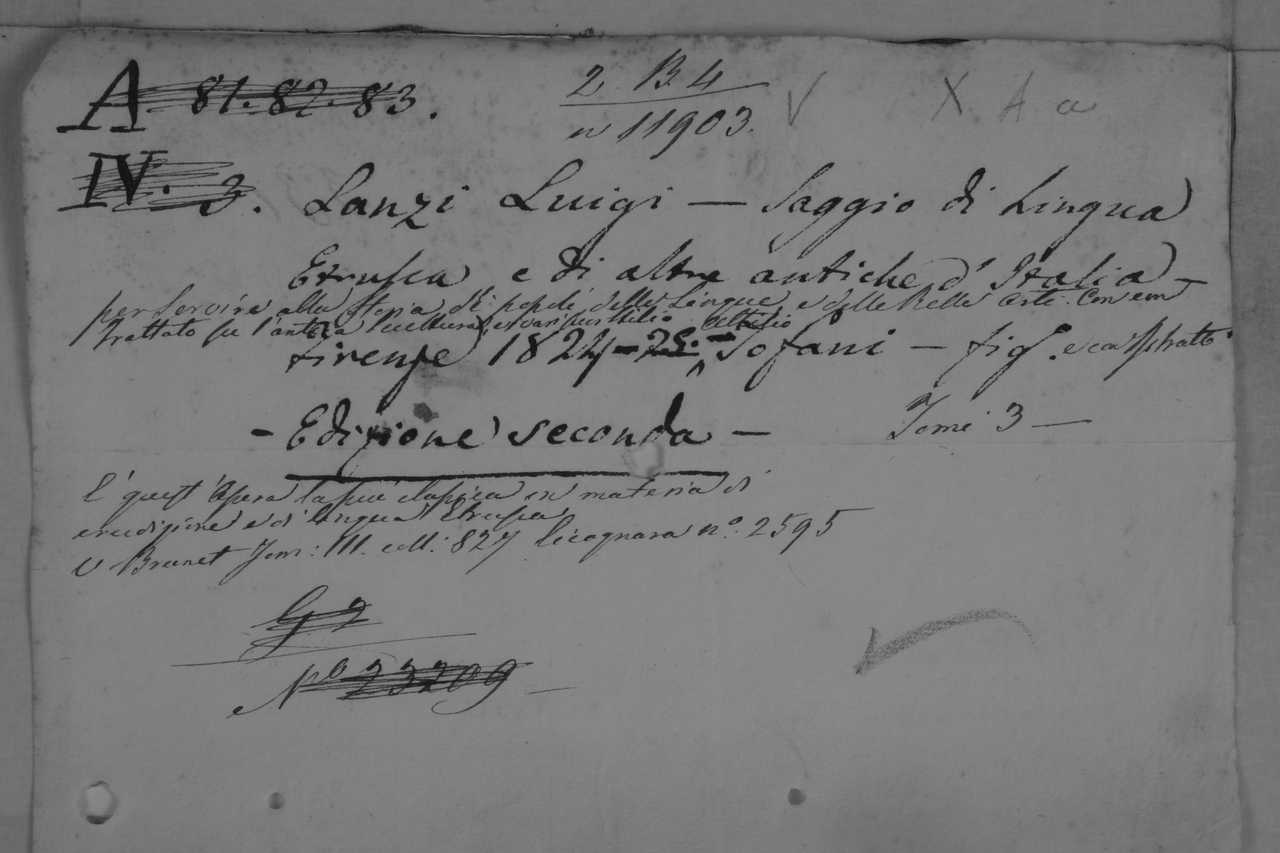 A 81. 82. 83.
2 B. 4
n 11903. V
X. A a
IV. 3. Lanzi Luigi — Saggio di Lingua
Etrusca e di altre antiche d'Italia —
per servire alla storia de' popoli, delle Lingue e delle Belle arti. Con un
trattato su l'antica scultura, e vari suoi stili
firenze 1824 - 25. - Tofani — fig.
- Edizione seconda —
Tomi 3 —
E' quest'Opera la più classica in materia di
erudizione e di lingua Etrusca
V Brunet Tom: III. coll: 827 Cicognara n.º 2595
G 2
Nº 23209 —